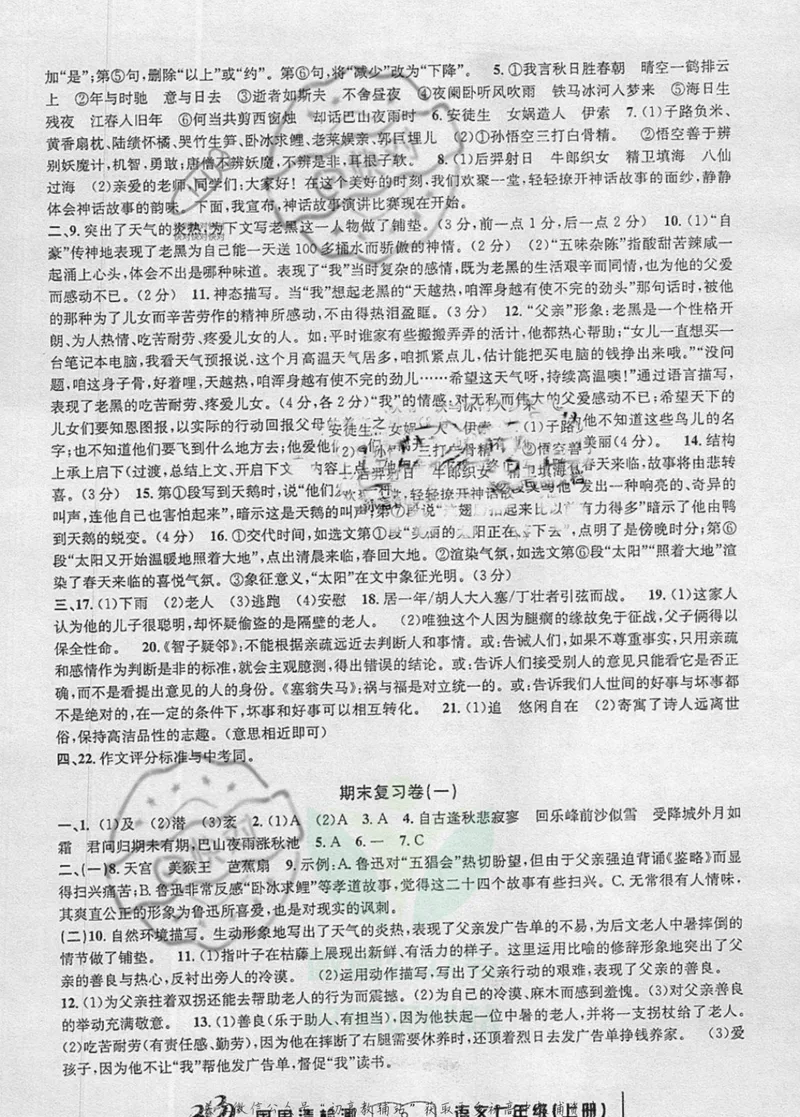 加“是”;第⑤句,删除“以上”或“约”。第⑥句,将“减少”改为“下降”。 5.①我言秋日胜春朝 晴空一鹤排云
上 ②年与时驰 意与日去 ③逝者如斯夫 不舍昼夜 ④夜阑卧听风吹雨 铁马冰河入梦来 ⑤海日生
残夜 江春入旧年 ⑥何当共剪西窗烛 却话巴山夜雨时 6.安徒生 女娲造人 伊索 7.(1)子路负米、
黄香扇枕、陆绩怀橘、哭竹生笋、卧冰求鲤、老莱娱亲、郭巨埋儿 (2)①孙悟空三打白骨精。 ②悟空善于辨
别妖魔计,机智,勇敢;唐僧不辨妖魔,不辨是非、耳根子软。 8.(1)后羿射日 牛郎织女 精卫填海 八仙
过海 (2)亲爱的老师、同学们:大家好!在这个美好的时刻,我们欢聚一堂,轻轻撩开神话故事的面纱,静静
体会神话故事的韵味。下面,我宣布,神话故事演讲比赛现在开始。
二、9.突出了天气的炎热,为下文写老黑这一人物做了铺垫。(3分,前一点1分,后一点2分) 10.(1)“自
豪”传神地表现了老黑为自己能一天送100多桶水而骄傲的神情。(2分) (2)“五味杂陈”指酸甜苦辣咸一
起涌上心头,体会不出是哪种味道。表现了“我”当时复杂的感情,既有对老黑的生活艰辛的同情,也为他的父爱
而感动不已。(2分) 11.神态描写。当“我”想起老黑的“天越热,咱浑身越有使不完的劲头”那句话时,被他
的那种为了儿女而辛苦劳作的精神所感动,不由得热泪盈眶。(3分) 12.“父亲”形象:老黑是一个性格开
朗、为人热情、吃苦耐劳、疼爱儿女的人。如:平时谁家有些搬搬弄弄的活计,他都热心帮助;“女儿一直想买一
台笔记本电脑,我看天气预报说,这个月高温天气居多,咱抓紧点儿,估计能把买电脑的钱挣出来哦。”“没问
题,咱这身子骨,好着哩,天越热,咱浑身越有使不完的劲儿……希望这天气呀,持续高温噢!”通过语言描写,
表现了老黑的吃苦耐劳、疼爱儿女。(4分,各2分) “我”的情感:对无私而伟大的父爱感动不已;希望天下的
儿女们要知恩图报,以实际的行动回报父母
字;也不知道他们要飞到什么地方去;他爱他们 美丽(4分) 14.结构
上承上启下(过渡,总结上文、开启下文 内容上 暗示着下文天鹅的到来,故事将由悲转
喜。(3分) 15.第①段写到天鹅时,说“他们 发出一种响亮的、奇异的
叫声,连他自己也害怕起来”,暗示这是天鹅的叫声;第
天鹅的蜕变。(4分) 16.①交代时间,如选文第 段“美丽的太阳正在落下去”,点明了是傍晚时分;第⑥
段“太阳又开始温暖地照着大地”,点出清晨来临,春回大地。②渲染气氛,如选文第⑥段“太阳”“照着大地”,渲
染了春天来临的喜悦气氛。③象征意义,“太阳”在文中象征光明。(3分)
三、17.(1)下雨 (2)老人 (3)逃跑 (4)安慰 18.居一年/胡人大入塞/丁壮者引弦而战。 19.(1)这家人
认为他的儿子很聪明,却怀疑偷盗的是隔壁的老人。 (2)唯独这个人因为腿瘸的缘故免于征战,父子俩得以
保全性命。 20.《智子疑邻》:不能根据亲疏远近去判断人和事情。或:告诫人们,如果不尊重事实,只用亲疏
和感情作为判断是非的标准,就会主观臆测,得出错误的结论。或:告诉人们接受别人的意见只能看它是否正
确,而不是看提出意见的人的身份。《塞翁失马》:祸与福是对立统一的。或:告诉我们人世间的好事与坏事都
不是绝对的,在一定的条件下,坏事和好事可以相互转化。 21.(1)追 悠闲自在 (2)寄寓了诗人远离世
俗,保持高洁品性的志趣。(意思相近即可)
四、22.作文评分标准与中考同。
期末复习卷(一)
一、1.(1)及 (2)潜 (3)衮 2.(1)A (2)A 3.A 4.自古逢秋悲寂寥 回乐峰前沙似雪 受降城外月如
霜 君问归期未有期,巴山夜雨涨秋池 5.A 6.一 7.C
二、(一)8.天宫 美猴王 芭蕉扇 9.示例:A.鲁迅对“五猖会”热切盼望,但由于父亲强迫背诵《鉴略》而显
得扫兴痛苦;B.鲁迅非常反感“卧冰求鲤”等孝道故事,觉得这二十四个故事有些扫兴。C.无常很有人情味,
其爽直公正的形象为鲁迅所喜爱,也是对现实的讽刺。
(二)10.自然环境描写。生动形象地写出了天气的炎热,表现了父亲发广告单的不易,为后文老人中暑摔倒的
情节做了铺垫。 11.(1)指叶子在枯藤上展现出新、有活力的样子。这里运用比喻的修辞形象地突出了父
亲的善良与热心,反衬出旁人的冷漠。 (2)运用动作描写,写出了父亲行动的艰难,表现了父亲的善良。
12.(1)为父亲拄着双拐还能去帮助老人的行为而震撼。(2)为自己的冷漠、麻木而感到羞愧。(3)对父亲
充满崇敬、敬意。 13.(1)善良(乐于助人、有担当),因为他扶起一位中暑的老人,并将一支拐杖给了老人。
(2)吃苦耐劳(有责任感、勤劳),因为他在腿脚不便需要休息时,还顶着烈日去发广告单挣钱养家。 (3)爱
孩子,因为他不让“我”帮他发广告单,督促“我”读书。
语文七年级(上册)